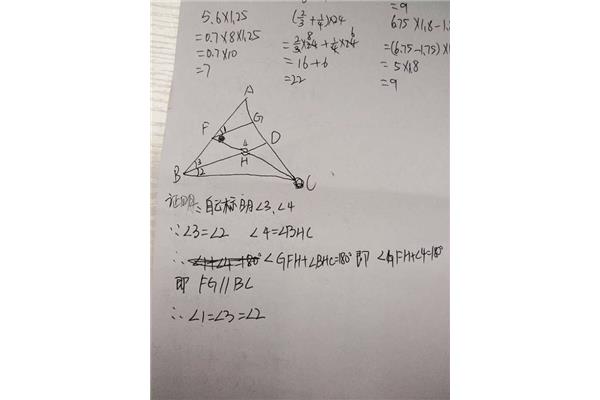 5.6×1.25
=0.7×8×1.25
=0.7×10
=7
(2/3+1/4)×24
=2/3×24+1/4×24
=16+6
=22
=9
6.75×1.8-1.
=(6.75-1.75)×1
=5×1.8
=9
A
F 1 G
4 D
H
3
B 2 C
证明:自己标明∠3、∠4
∵∠3=∠2 ∠4=∠BHC
∴ ∠1+∠4=180° ∠GFH+∠BHC=180° 即 ∠GFH+∠4=180°
即 FG//BC
∴∠1=∠3=∠2